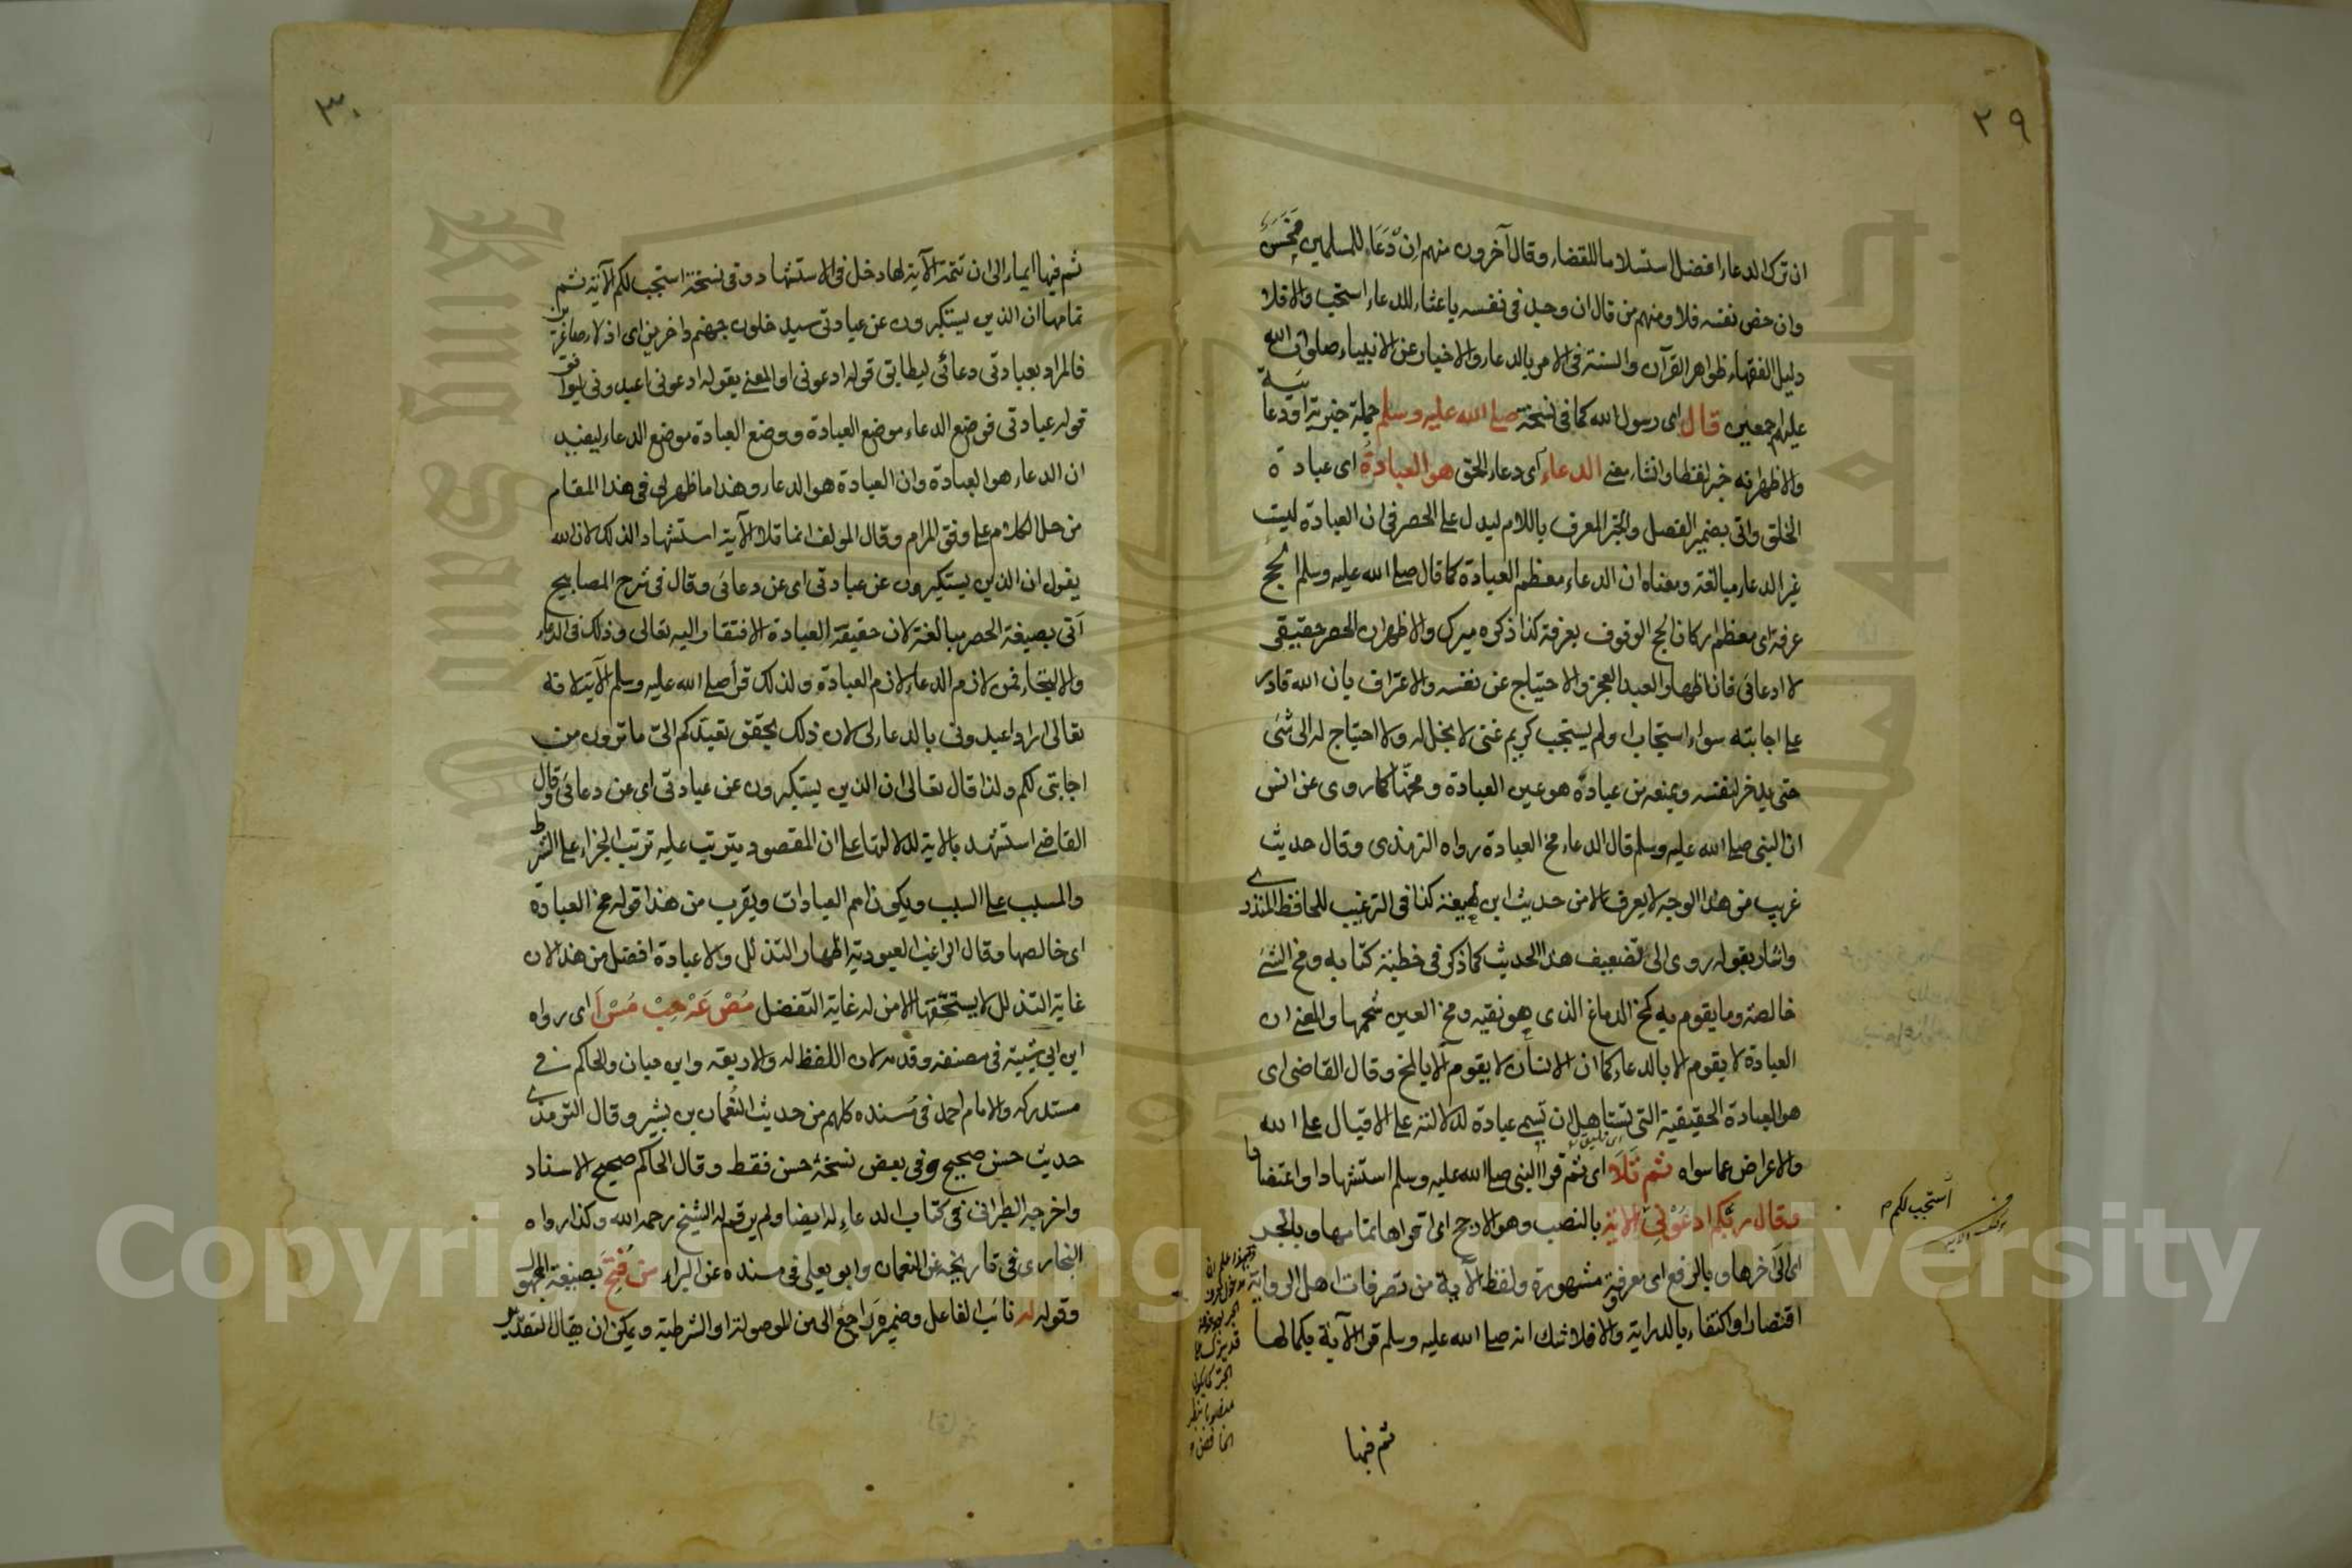 ٢٩
ان ترك الدعاء افضل استسلاما للقضاء وقال آخرون منهم ان دَعَاء للمسلمين فحَسَن
وان خص نفسه فلا ومنهم من قال ان وجد فى نفسه باعثا للدعاء استحب والا فلا
دليل الفقهاء ظواهر القرآن والسنة فى الامر بالدعاء والاخبار عن الانبياء صلوات الله
عليهم اجمعين قال اى رسول الله كما فى نسخة صلى الله عليه وسلم جملة خبرية او دعائية
والاظهر انه خبر لفظا وانشاء معنى الدعاء اى دعاء الحق هو العبادة اى عبادة
الخلق واتى بضمير الفصل والخبر المعرف باللام ليدل على الحصر فى ان العبادة ليست
غير الدعاء مبالغة ومعناه ان الدعاء معظم العبادة كما قال صلى الله عليه وسلم الحج
عرفة اى معظم اركان الحج الوقوف بعرفة كذا ذكره ميرك والاظهر ان الحصر حقيقى
لا ادعائى فان اظهار العبد العجز والاحتياج عن نفسه والاعتراف بان الله قادر
على اجابته سواء استجاب او لم يستجب كريم غنى لا بخل له ولا احتياج له الى شئ
حتى يدخر لنفسه ويمنعه من عباده هو عين العبادة ومخها كما روى عن انس
ان النبى صلى الله عليه وسلم قال الدعاء مخ العبادة رواه الترمذى وقال حديث
غريب من هذا الوجه لا يعرف الا من حديث ابن لهيعة كذا فى الترغيب للحافظ المنذرى
واشار بقوله روى الى تضعيف هذا الحديث كما ذكر فى خطبة كتابه ومخ الشئ
خالصه وما يقوم به كمخ الدماغ الذى هو نقيه ومخ العين شحمها والمعنى ان
العبادة لا يقوم الا بالدعاء كما ان الانسان لا يقوم الا بالمخ وقال القاضى اى
هو العبادة الحقيقية التى تستاهل ان تسمى عبادة لدلالته على الاقبال على الله
والاعراض عما سواه ثم تَلَا اى ثم قرأ النبى صلى الله عليه وسلم استشهادا واعتضادا
وقال ربكم ادعونى الآية بالنصب وهو الارجح اى اقرأها بتمامها وبالجر
اى الى آخرها وبالرفع اى معرفة مشهورة ولفظ الآية من تصرفات اهل الرواية
اقتصارا واكتفاء بالدراية والا فلا شك انه صلى الله عليه وسلم قرأ الآية بكمالها
استجب لكم
ثم فيها
٣٠
ثم فيها ايماء الى ان تتمة الآية لها دخل فى الاستشهاد وفى نسخة استجب لكم الآية ثم
تمامها ان الذين يستكبرون عن عبادتى سيدخلون جهنم داخرين اى اذلاء صاغرين
فالمراد بعبادتى دعائى ليطابق قوله ادعونى او المعنى بقوله ادعونى اعبدونى ليوافق
قوله عبادتى فوضع الدعاء موضع العبادة ووضع العبادة موضع الدعاء ليفيد
ان الدعاء هو العبادة وان العبادة هو الدعاء وهذا ما ظهر لى فى هذا المقام
من حل الكلام على وفق المرام وقال المولف انما تلا الآية استشهادا لذلك لان الله
يقول ان الذين يستكبرون عن عبادتى اى عن دعائى وقال فى شرح المصابيح
أتى بصيغة الحصر مبالغة لان حقيقة العبادة الافتقار اليه تعالى وذلك فى الدعاء
والالتجاء فمن لازم الدعاء لازم العبادة ولذلك قرأ صلى الله عليه وسلم الآية لانه
تعالى اراد اعبدونى بالدعاء لى لان ذلك يحقق تعبدكم الى ما ترون من
اجابتى لكم ولذا قال تعالى ان الذين يستكبرون عن عبادتى اى عن دعائى وقال
القاضى استشهد بالآية لدلالتها على ان المقصود يترتب عليه ترتب الجزاء على الشرط
والمسبب على السبب ويكون اهم العبادات ويقرب من هذا قوله مخ العبادة
اى خالصها وقال الراغب العبودية اظهار التذلل والاعبادة افضل من هذا لان
غاية التذلل لا يستحقها الا من له غاية التفضل مُصْ عَهْ حِبْ مُسْ أَ اى رواه
ابن ابى شيبة فى مصنفه وقدمه لان اللفظ له والاربعة وابن حبان والحاكم فى
مستدركه والامام احمد فى مُسنده كلهم من حديث النُعمان بن بشير وقال الترمذى
حديث حسن صحيح وفى بعض نسخه حسن فقط وقال الحاكم صحيح الاسناد
واخرجه الطبرانى فى كتاب الدعاء له ايضا ولم يرقم له الشيخ رحمه الله وكذا رواه
البخارى فى تاريخه عن النعمان وابو يعلى فى مسنده عن البراء من فُتِحَ بصيغة المجهول
وقوله له نائب الفاعل وضميره راجع الى من الموصولة او الشرطية ويمكن ان يقال التقدير
Copyright © King Saud University
King Saud University
1957